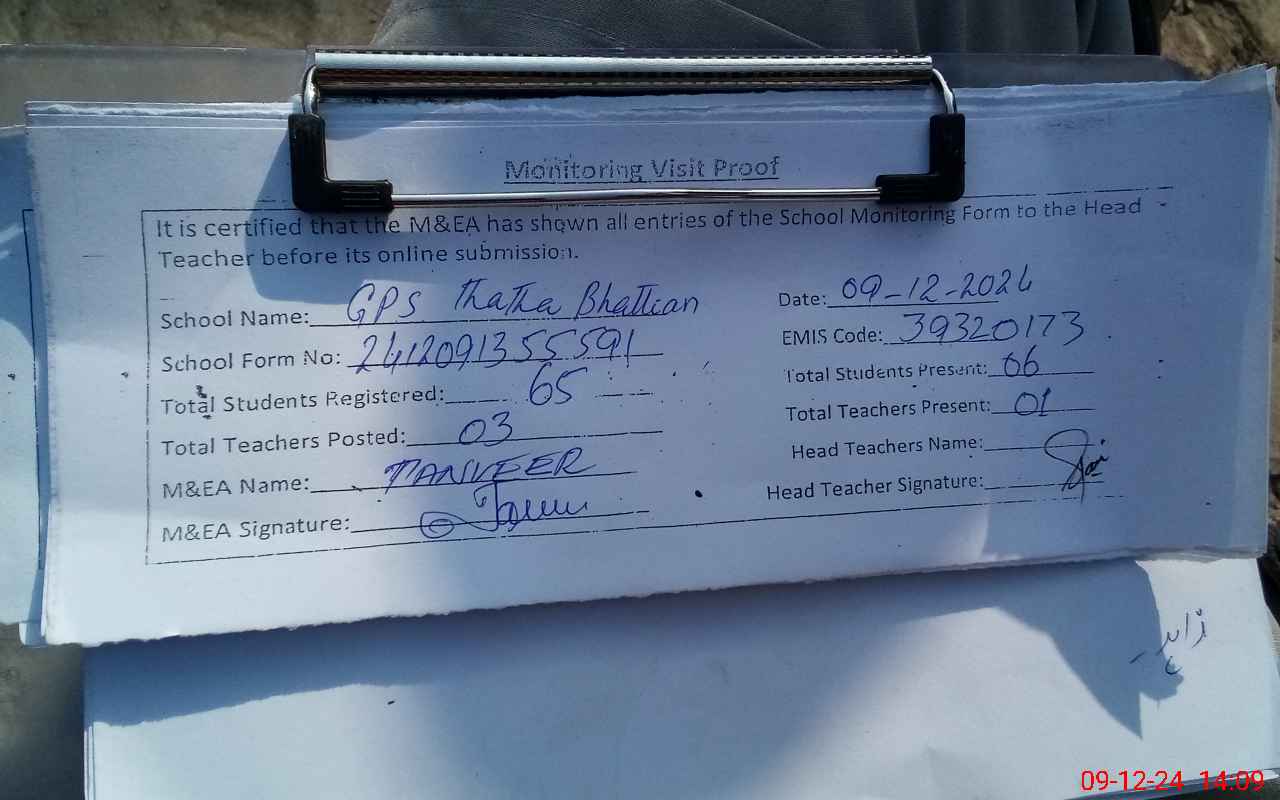 Monitoring Visit Proof
It is certified that the M&EA has shown all entries of the School Monitoring Form to the Head
Teacher before its online submission.
School Name: GPS Thatha Bhattian Date: 09-12-2024
School Form No: 2412091355591 EMIS Code: 39320173
Total Students Registered: 65 Total Students Present: 06
Total Teachers Posted: 03 Total Teachers Present: 01
M&EA Name: TANVEER Head Teachers Name:
M&EA Signature: Head Teacher Signature:
09-12-24 14:09